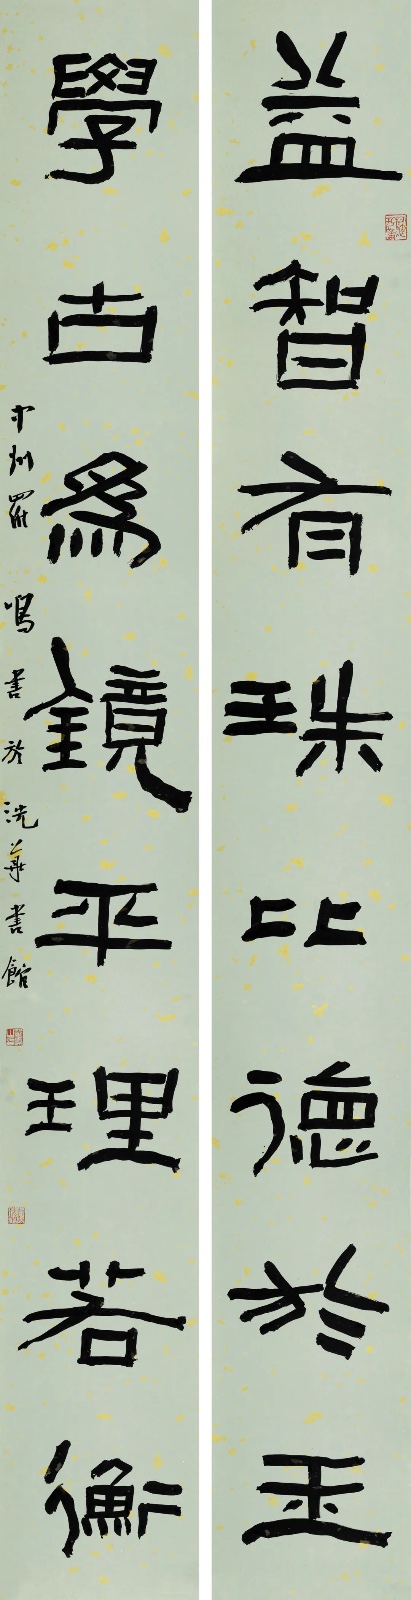 益智有珠比德於玉
學古為鏡平理若衡
中州羅鳴書於洗華書館